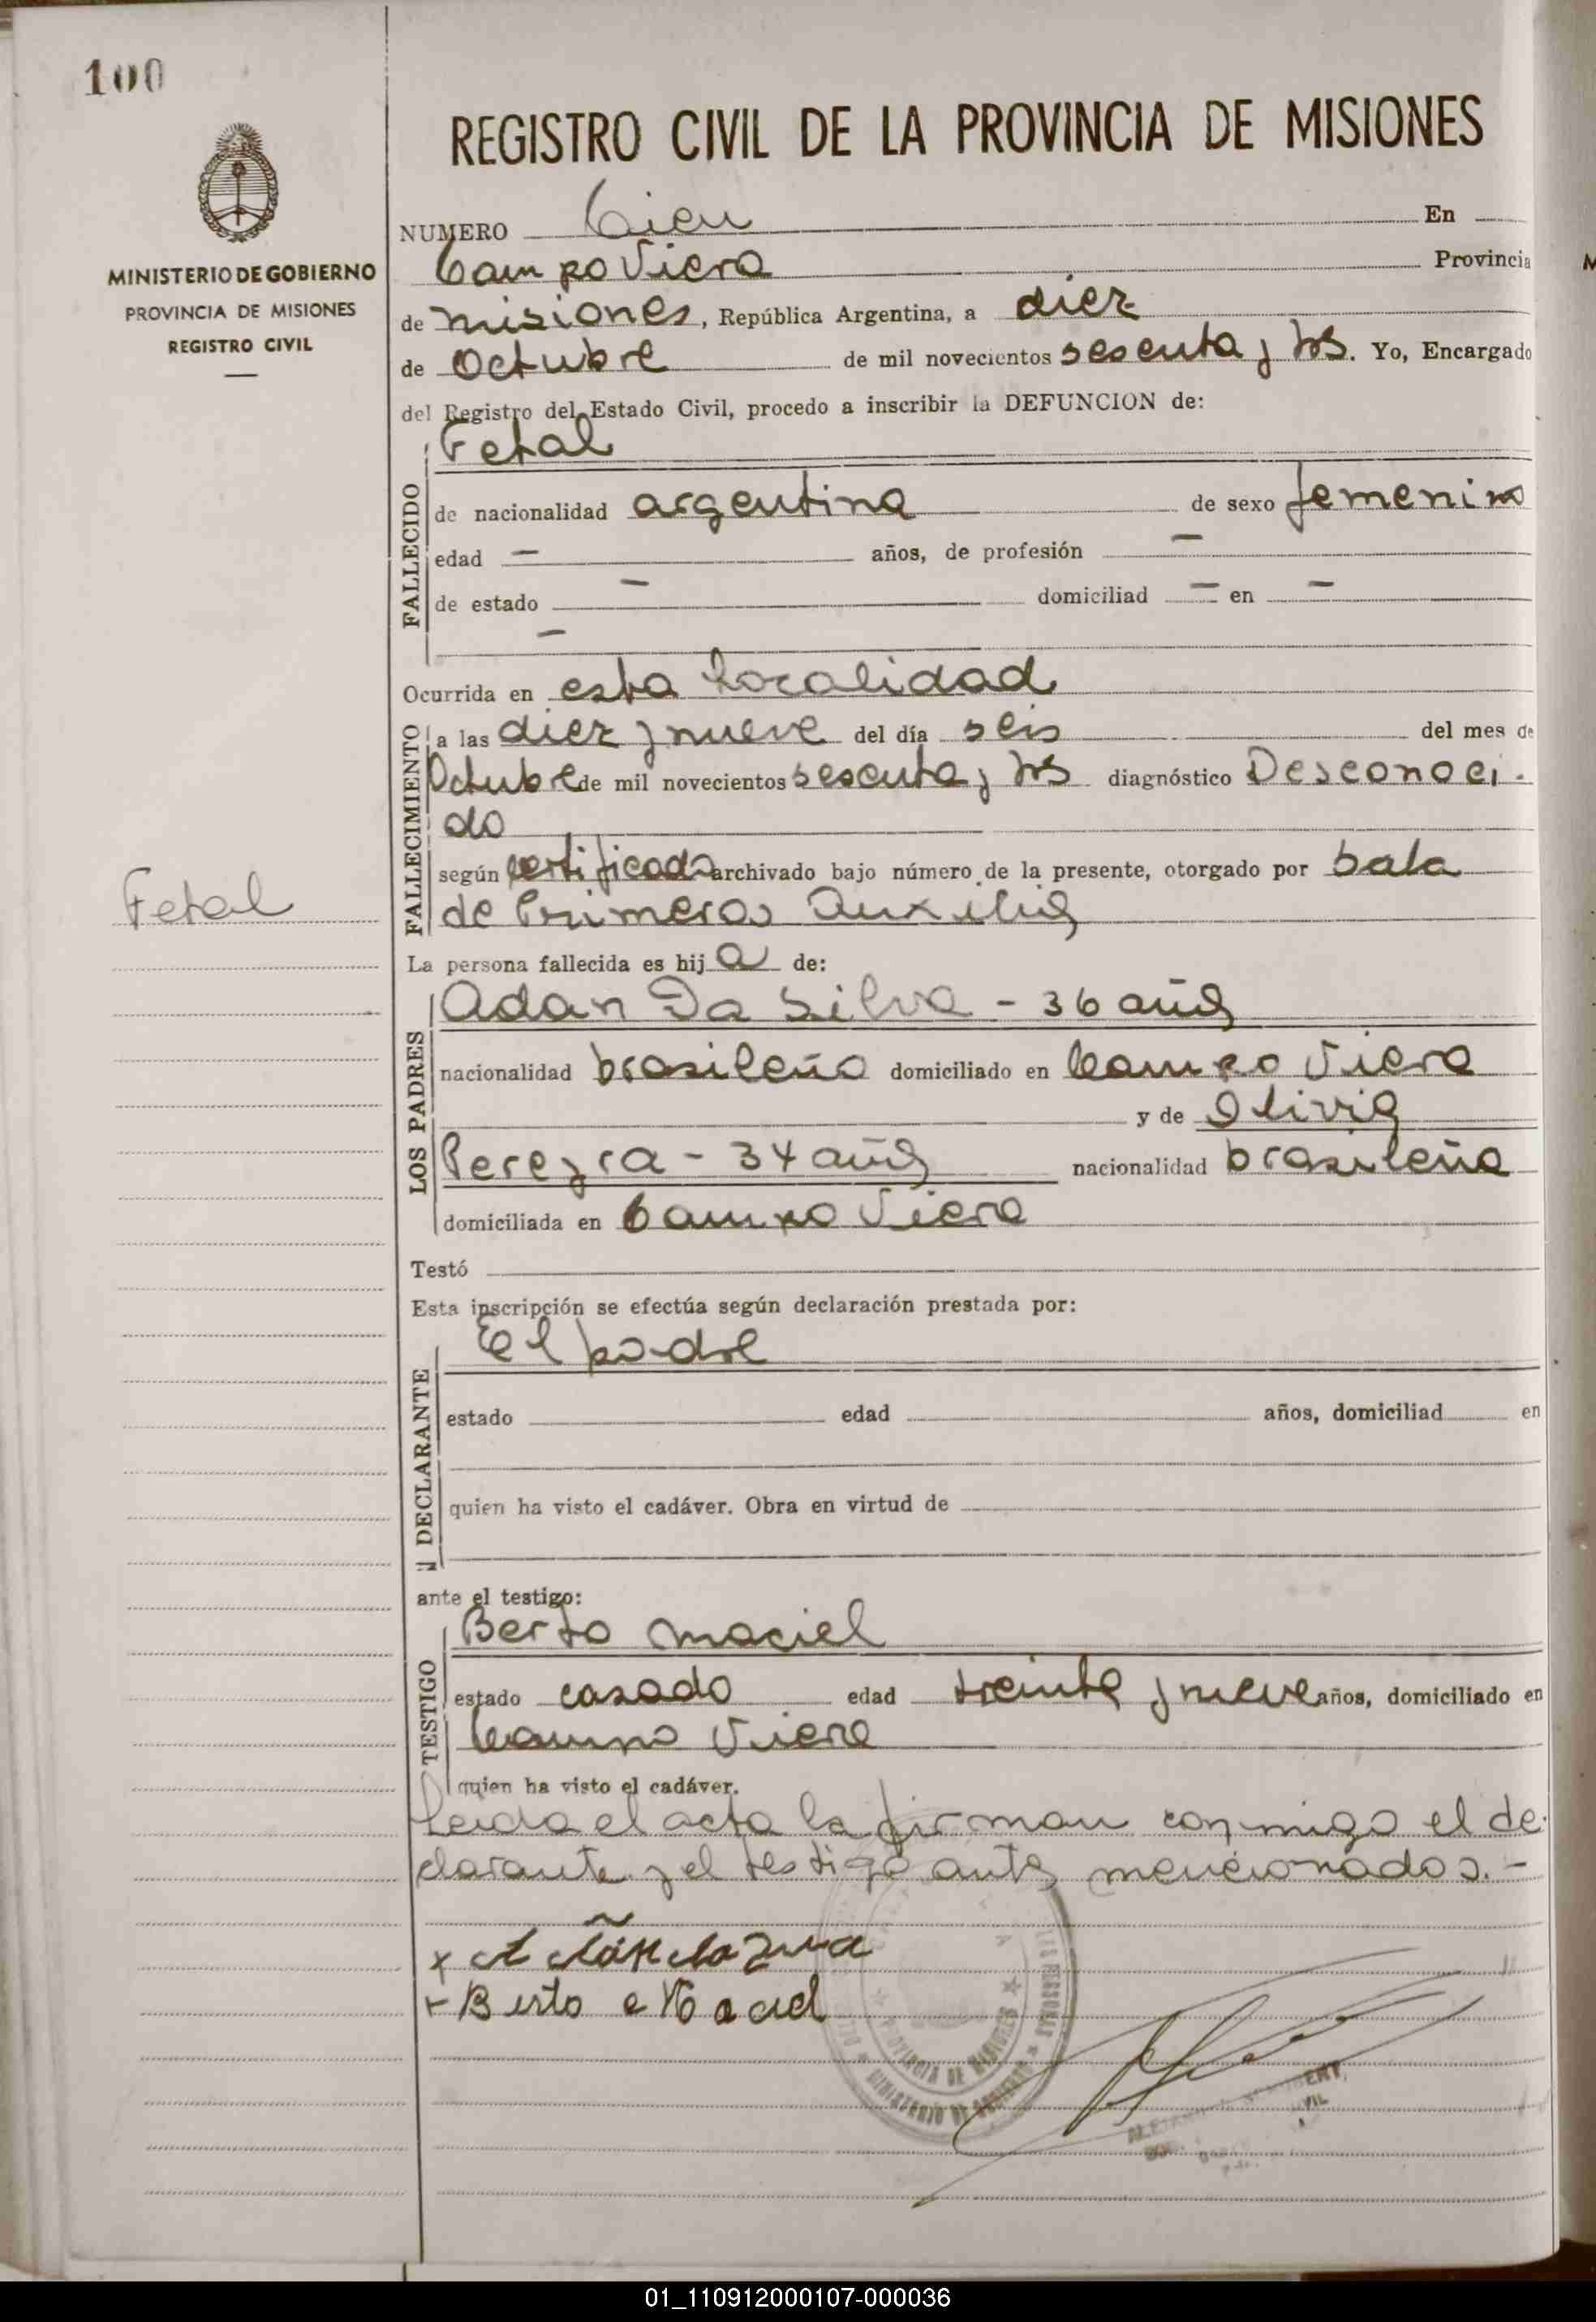 100
REGISTRO CIVIL DE LA PROVINCIA DE MISIONES
MINISTERIO DE GOBIERNO
PROVINCIA DE MISIONES
REGISTRO CIVIL
NUMERO Cien En
Campo Viera Provincia
de misiones, República Argentina, a diez
de Octubre de mil novecientos sesenta y tres. Yo, Encargado
del Registro del Estado Civil, procedo a inscribir la DEFUNCION de:
Fetal
FALLECIDO
de nacionalidad argentina de sexo femenino
edad — años, de profesión —
de estado — domiciliad — en —
—
Ocurrida en esta Localidad
FALLECIMIENTO
a las diez y nueve del día seis del mes de
Octubre de mil novecientos sesenta y tres diagnóstico Desconoci-
do
según certificado archivado bajo número de la presente, otorgado por Sala
de Primeros Auxilios
Fetal
La persona fallecida es hija de:
LOS PADRES
Adan Da Silva - 36 años
nacionalidad brasileño domiciliado en Campo Viera
y de Olivia
Pereyra - 34 años nacionalidad brasileña
domiciliada en Campo Viera
Testó
Esta inscripción se efectúa según declaración prestada por:
El padre
DECLARANTE
estado edad años, domiciliad en
quien ha visto el cadáver. Obra en virtud de
ante el testigo:
TESTIGO
Berto Maciel
estado casado edad treinta y nueve años, domiciliado en
Campo Viera
quien ha visto el cadáver.
Leida el acta la firman conmigo el de-
clarante y el testigo antes mencionados.-
Berto Maciel
PROVINCIA DE MISIONES
MINISTERIO DE GOBIERNO
LAS PERSONAS
01_110912000107-000036